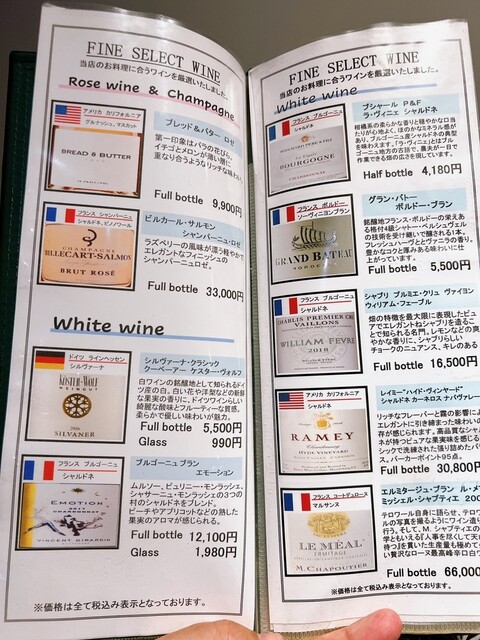 FINE SELECT WINE
当店のお料理に合うワインを厳選いたしました。
Rose wine & Champagne
アメリカ カリフォルニア
グルナッシュ、マスカット
BREAD & BUTTER
ブレッド&バター ロゼ
第一印象はバラの花びら。
イチゴとメロンが薄い層に
重なり合うようなリッチな味わい
Full bottle 9,900円
フランス シャンパーニュ
シャルドネ、ピノノワール
CHAMPAGNE
BILLECART-SALMON
BRUT ROSÉ
ビルカール・サルモン
シャンパーニュ・ロゼ
ラズベリーの風味が漂う軽やかで
エレガントなフィニッシュの
シャンパーニュロゼ。
Full bottle 33,000円
White wine
ドイツ ラインヘッセン
シルヴァーナ
KÜSTER-WOLF
WEINGUT
SILVANER
シルヴァーナ・クラシック
クーベーアー ケスター・ヴォルフ
白ワインの銘醸地として知られるドイ
ツ産の白。白い花や洋梨などの新鮮
な果実の香りに、ドイツワインらしい
綺麗な酸味とフルーティーな質感。
柔らかで優しい味わいが魅力。
Full bottle 5,500円
Glass 990円
フランス ブルゴーニュ
シャルドネ
EMOTION
CHARDONNAY
VINCENT GIRARDIN
ブルゴーニュブラン
エモーション
ムルソー、ピュリニー・モンラッシェ、
シャサーニュ・モンラッシェの3つの
村のシャルドネをブレンド。
ピーチやアプリコットなどの熟した
果実のアロマが感じられる。
Full bottle 12,100円
Glass 1,980円
※価格は全て税込み表示となっております。
FINE SELECT WINE
当店のお料理に合うワインを厳選いたしました。
White wine
フランス ブルゴーニュ
シャルドネ
BOURGOGNE
CHARDONNAY
ブシャール P&F
ラ・ヴィニェ シャルドネ
柑橘系の柔らかな香りと穏やかな口当
たりが心地よく、ほのかなミネラル感が
あり、ブルゴーニュ産シャルドネの典型
を味わえます。「ラ・ヴィニェ」とはブル
ゴーニュ地方の方言で、農夫が一日で
作業できる畑の広さを現しています。
Half bottle 4,180円
フランス ボルドー
ソーヴィニヨンブラン
GRAND BATEAU
BORDEAUX
グラン・バトー
ボルドー・ブラン
銘醸地フランス・ボルドーの栄えあ
る格付4級シャトー・ベルシュヴェル
の技術を受け継いで醸される1本。
フレッシュハーヴとヴァニラの香り。
豊かなコクと厚みある味わいに仕
上がっています。
Full bottle 5,500円
フランス ブルゴーニュ
シャルドネ
CHABLIS PREMIER CRU
VAILLONS
WILLIAM FEVRE
2018
シャブリ プルミエ・クリュ ヴァイヨン
ウィリアム・フェーブル
畑の特徴を最大限に表現したピュ
アでエレガントねシャブリを造るこ
とで知られる名門。レモンなどの爽
やかな香りに、シャブリらしい
チョークのニュアンス、キレのある
Full bottle 16,500円
アメリカ カリフォルニア
シャルドネ
RAMEY
Chardonnay
HYDE VINEYARD
レイミー“ハイド・ヴィンヤード”
シャルドネ カーネロス ナパヴァレー
リッチなフレーバーと霧の影響によ
エレガントに引き締まった味わいの
存が感じられます。高品質なシャル
ネが持つピュアな果実味を感じる
シックで洗練された張り詰めたバ
ス。パーカーポイント95点。
Full bottle 30,800円
フランス コートデュローヌ
マルサンヌ
ERMITAGE
LE MÉAL
M. CHAPOUTIER
エルミタージュ・ブラン ル・メ
ミッシェル・シャプティエ 200
テロワール自身に語らせ、テロワ
ルの写真を撮るようにワイン造り
行う。そして、M. シャプティエの
学ともいえる『人事を尽くして天
待つ』を貫いた生産量も極めて
い贅沢なローヌ最高峰辛口白ワ
Full bottle 66,000
※価格は全て税込み表示となっております。